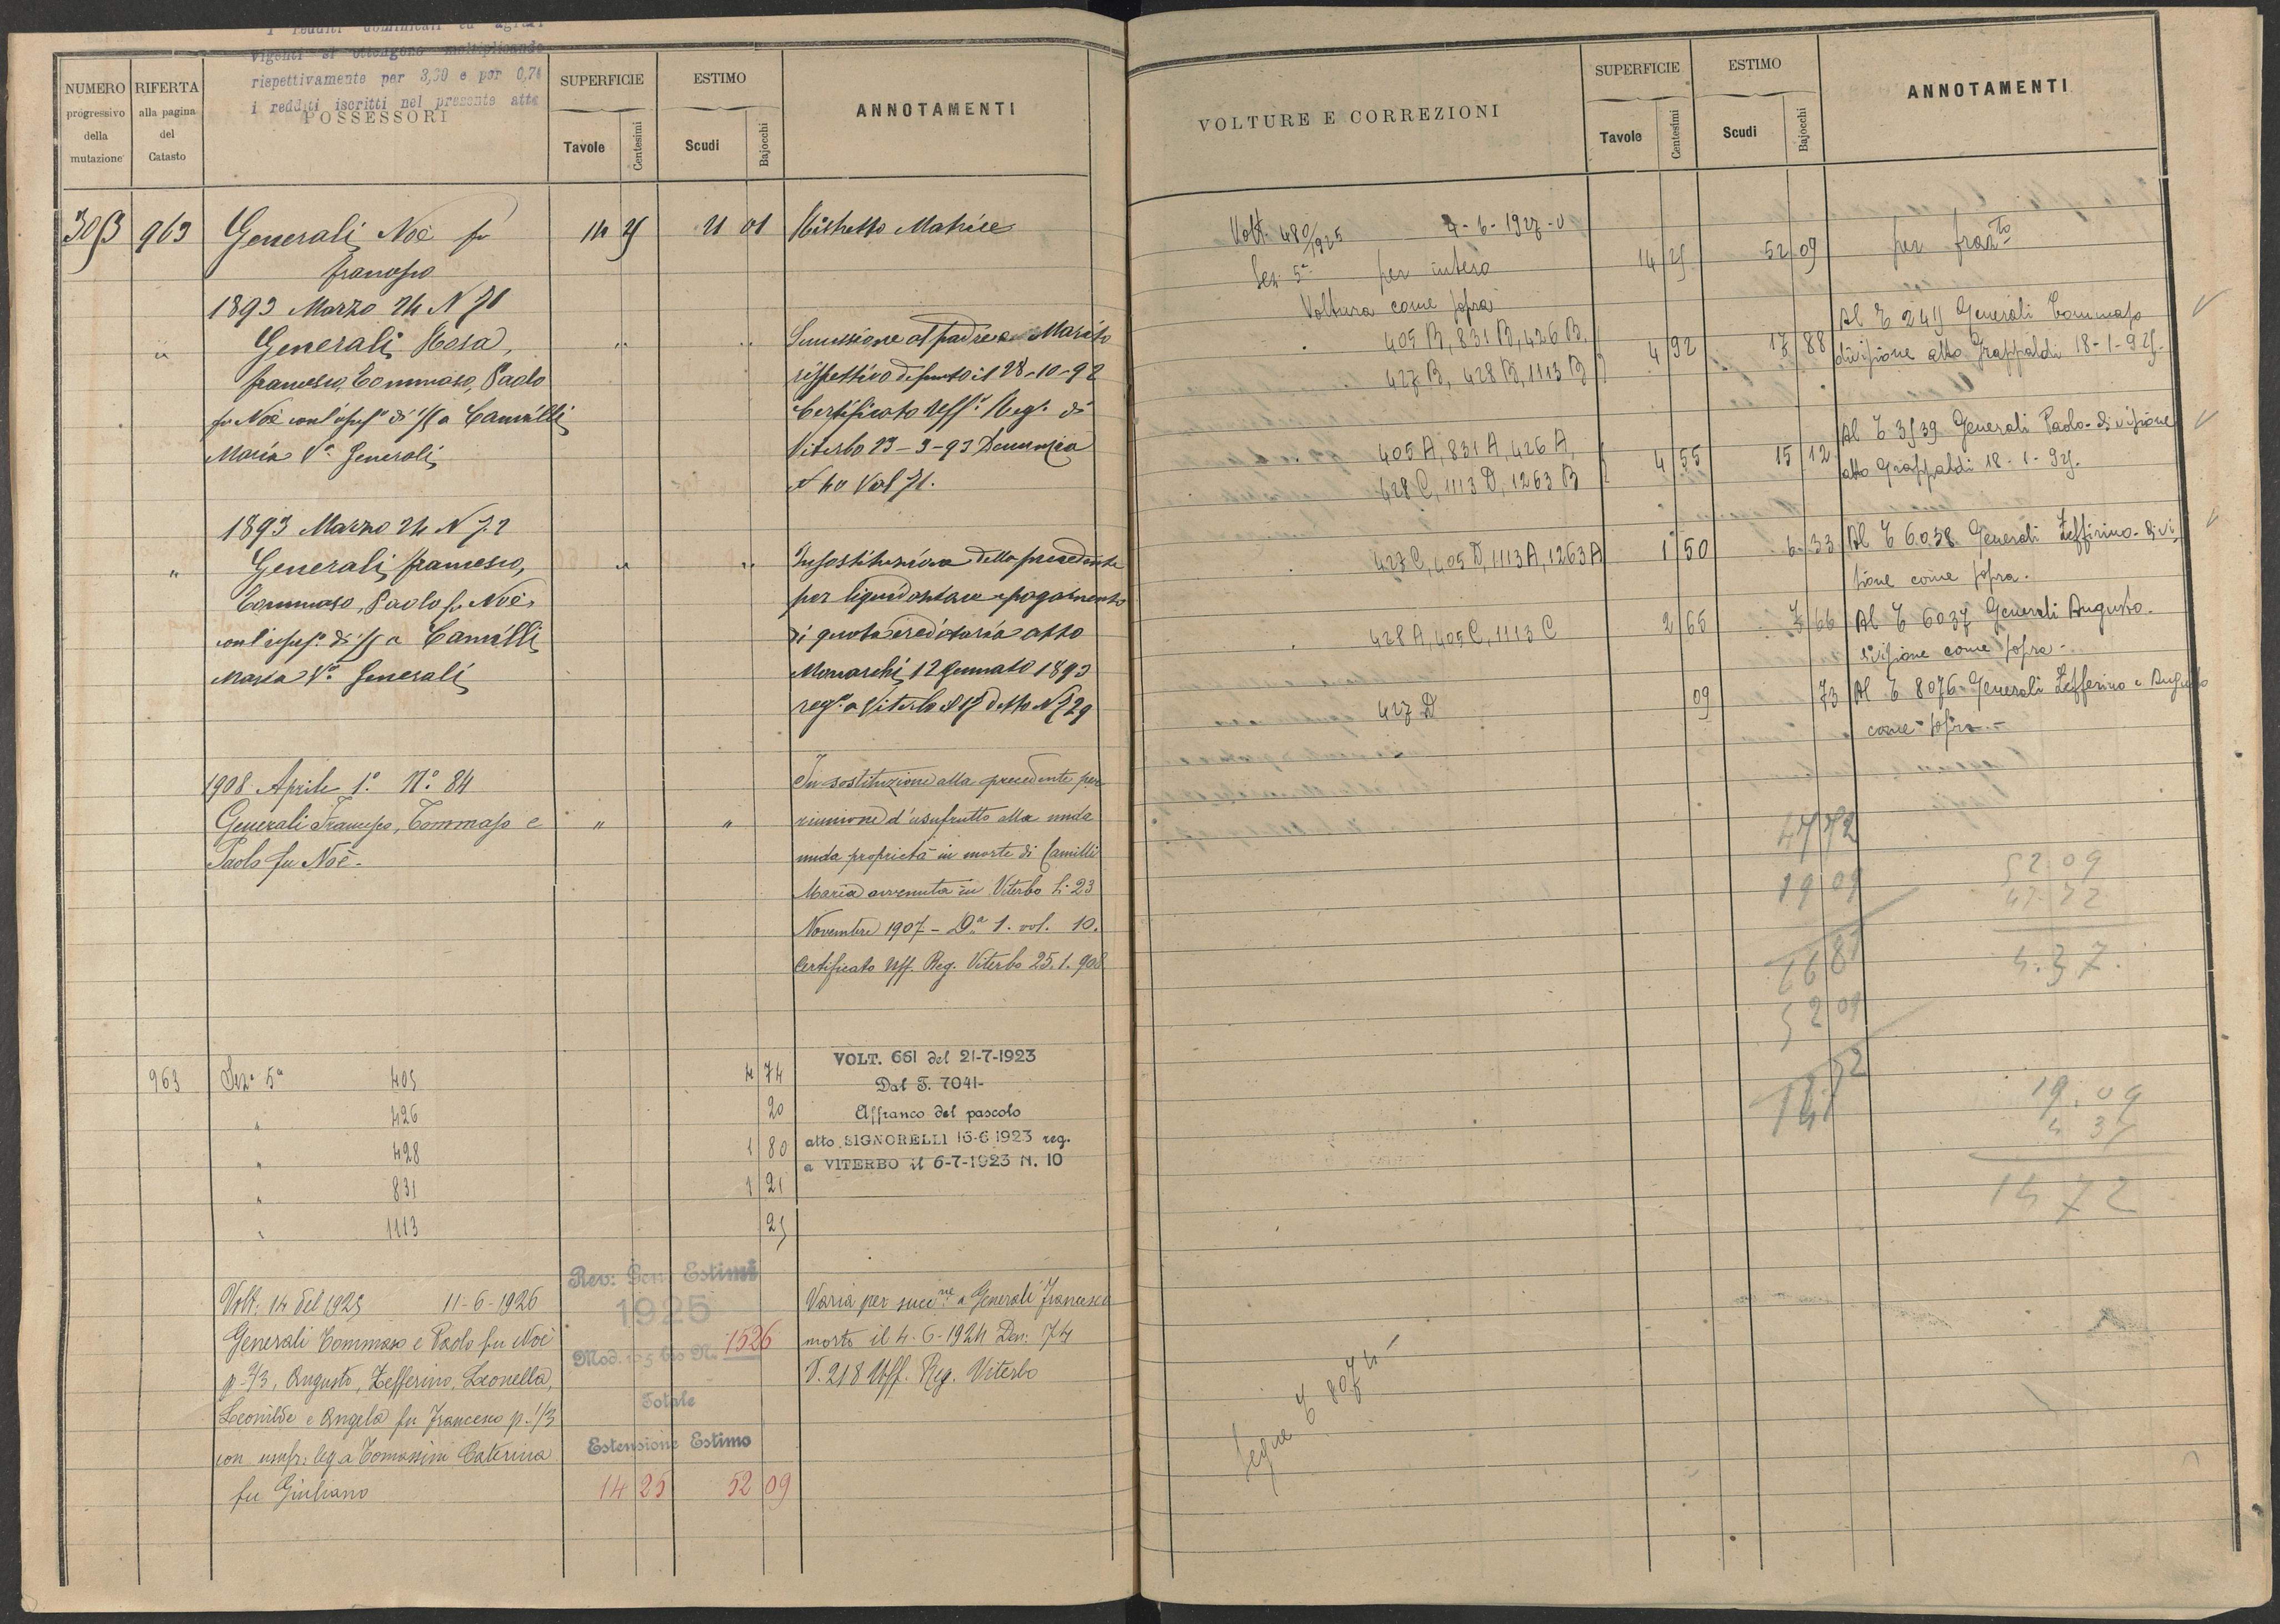 I redditi dominicali ed agrari
vigenti si ottengono moltiplicando
rispettivamente per 3,30 e per 0,74
i redditi iscritti nel presente atto
NUMERO progressivo della mutazione
RIFERTA alla pagina del Catasto
POSSESSORI
SUPERFICIE
Tavole Centesimi
ESTIMO
Scudi Bajocchi
ANNOTAMENTI
963 Generali Noè fu 14 25 21 01
Francesco
1893 Marzo 24 N 71
" Generali Rosa, " " Successione al padre e Marito
Francesco, Tommaso, Paolo rispettivo defunto il 28-10-92
fu Noè con l'usuf° di 1/5 a Camilli Certificato Uff° Reg. di
Maria Va Generali Viterbo 23-3-93 Denunzia
N 40 Vol 71.
1893 Marzo 24 N 72
" Generali Francesco, " " In sostituzione della precedente
Tommaso, Paolo fu Noè, per liquidazione e pagamento
con l'usuf° di 1/5 a Camilli di quota ereditaria atto
Maria Va Generali Monarchi 12 Gennaio 1893
reg° a Viterbo il 15 detto N 529
1908 Aprile 1° N° 84 In sostituzione alla precedente per
Generali Francesco, Tommaso e " " riunione d'usufrutto alla nuda
Paolo fu Noè. nuda proprietà in morte di Camilli
Maria avvenuta in Viterbo li 23
Novembre 1907 - Da 1. vol. 10.
Certificato Uff. Reg. Viterbo 25.1.908
963 Seza 5a 405 4 74
" 426 20
" 428 1 80
" 831 1 21
" 1113 25
VOLT. 661 del 21-7-1923
Dal T. 7041-
Affranco del pascolo
atto SIGNORELLI 16-6 1923 reg.
a VITERBO il 6-7-1923 N. 10
Volt: 14 del 1925 11-6-1926
Generali Tommaso e Paolo fu Noè
p. 2/3, Augusto, Zefferino, Leonella,
Leonilde e Angela fu Francesco p. 1/3
con usufr: leg a Tomassini Caterina
fu Giuliano
Rev: Gen. Estimi
1925
Mod. 105 bis N. 1526
Totale
Estensione Estimo
14 25 52 09
Varia per succne a Generali Francesco
morto il 4-6-1924 Den: 74
V. 218 Uff. Reg. Viterbo
VOLTURE E CORREZIONI
SUPERFICIE
Tavole Centesimi
ESTIMO
Scudi Bajocchi
ANNOTAMENTI
Volt. 480/1925 7-6-1927-V
Sez 5a per intero 14 25 52 09 per frazto
Voltura come sopra
405 B, 831 B, 426 B, 4 92 17 88 Al T 2411 Generali Tommaso
427 B, 428 B, 1113 B divisione atto Grappaldi 18-1-925.
405 A, 831 A, 426 A, 4 55 15 12 Al T 3539 Generali Paolo-divisione
428 C, 1113 D, 1263 B atto Grappaldi 18-1-925.
427 C, 405 D, 1113 A, 1263 A 1 50 6 33 Al T 6038 Generali Zeffirino-divi
sione come sopra.
428 A, 405 C, 1113 C 2 65 7 66 Al T 6037 Generali Augusto.
divisione come sopra-
427 D 09 73 Al T 8076-Generali Zefferino e Augusto
come sopra-
47 72
19 09
52 09
47.72
4.37.
52 09
19.09
4 37
14 72
Segue T 8074